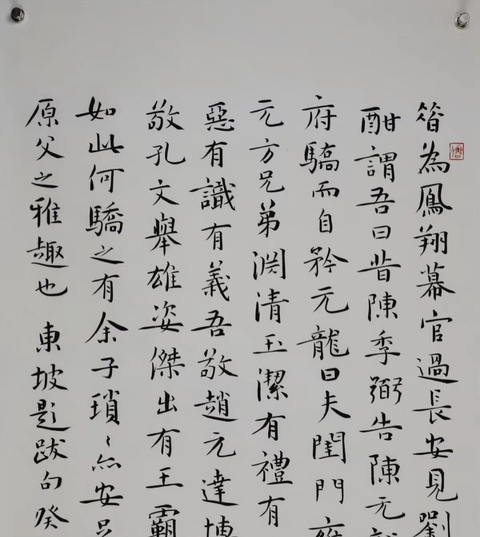 昔為鳳翔幕官過長安見劉
酣謂吾曰昔陳季弼告陳元
府驕而自矜元龍曰夫閨門
元方兄弟淵清玉潔有禮有
惡有識有義吾敬趙元達博
敬孔文舉雄姿傑出有王霸
如此何驕之有余子瑣〻亦安
原父之雅趣也 東坡題跋句 癸